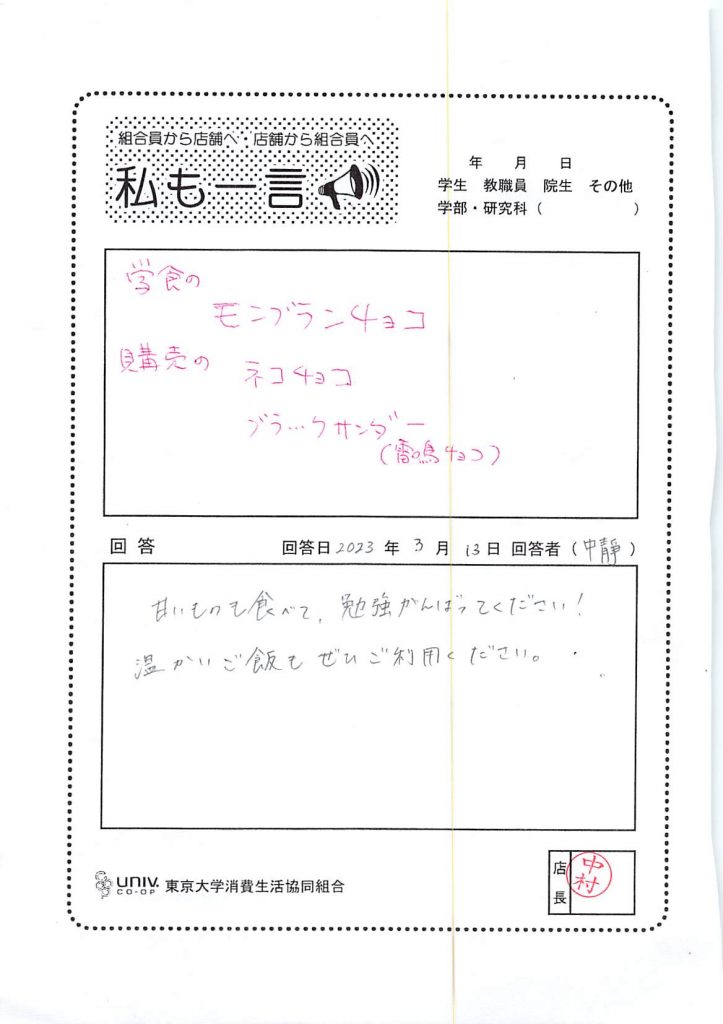 組合員から店舗へ・店舗から組合員へ
私も一言
年 月 日
学生 教職員 院生 その他
学部・研究科（ ）
学食の
モンブランチョコ
購売の
ネコチョコ
ブラックサンダー
(雷鳴チョコ)
回答 回答日 2023 年 3 月 13 日 回答者（中靜）
甘いものも食べて、勉強がんばってください！
温かいご飯もぜひご利用ください。
UNIV. CO-OP 東京大学消費生活協同組合
店長
中村